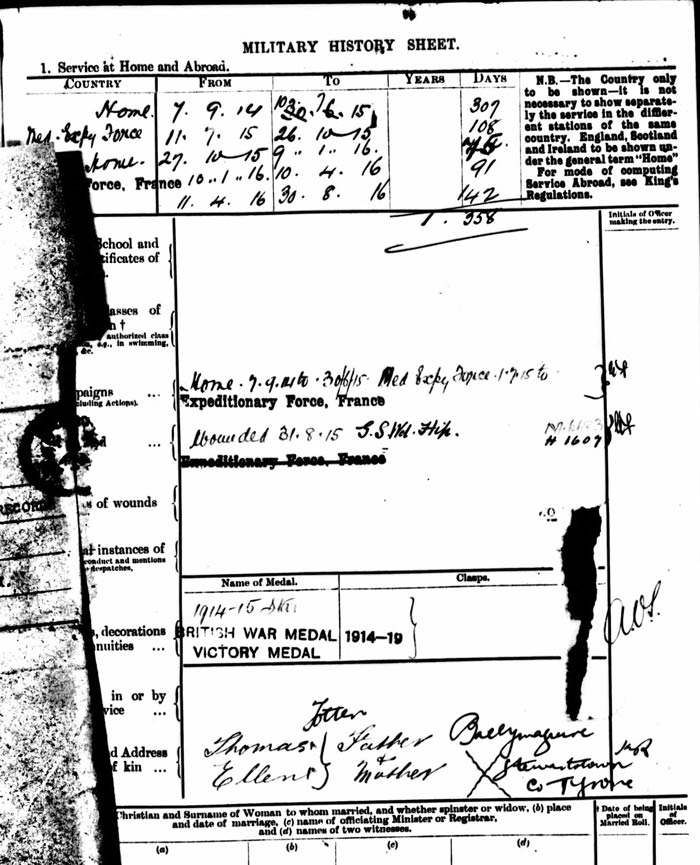 MILITARY HISTORY SHEET.
1. Service at Home and Abroad.
COUNTRY FROM TO YEARS DAYS
Home. 7. 9. 14 15 307
Med. Expy Force 11. 7. 15 26. 10 15 108
Home. 27. 10 15 9 . 1 . 16.
Force, France 10 . 1 . 16 10. 4. 16 91
11. 4. 16 30. 8. 16 142
1. 358
N.B.—The Country only
to be shown—it is not
necessary to show separate-
ly the service in the differ-
ent stations of the same
country. England, Scotland
and Ireland to be shown un-
der the general term "Home"
For mode of computing
Service Abroad, see King's
Regulations.
Initials of Officer
making the entry.
School and
tificates of
asses of
n †
authorized class
., in swimming,
&c.
paigns ...
cluding Actions).
Home. 7.9.14 to 30/6/15 Med Expy Force 1.7.15 to
Expeditionary Force, France
Wounded 31.8.15 G.S.Wd. Hip.
H 1607
Expeditionary Force, France
RECORD
s of wounds
al instances of
conduct and mentions
despatches.
Name of Medal. Clasps.
1914-15 Star
BRITISH WAR MEDAL 1914-19
VICTORY MEDAL
s, decorations
nnuities ...
in or by
vice ...
Totten
d Address
f kin ...
Thomas Father Ballymaguire
Ellen Mother Stewartstown
Co Tyrone
Christian and Surname of Woman to whom married, and whether spinster or widow, (b) place
and date of marriage, (c) name of officiating Minister or Registrar,
and (d) names of two witnesses.
† Date of being
placed on
Married Roll.
Initials
of
Officer.
(a) (b) (c) (d)